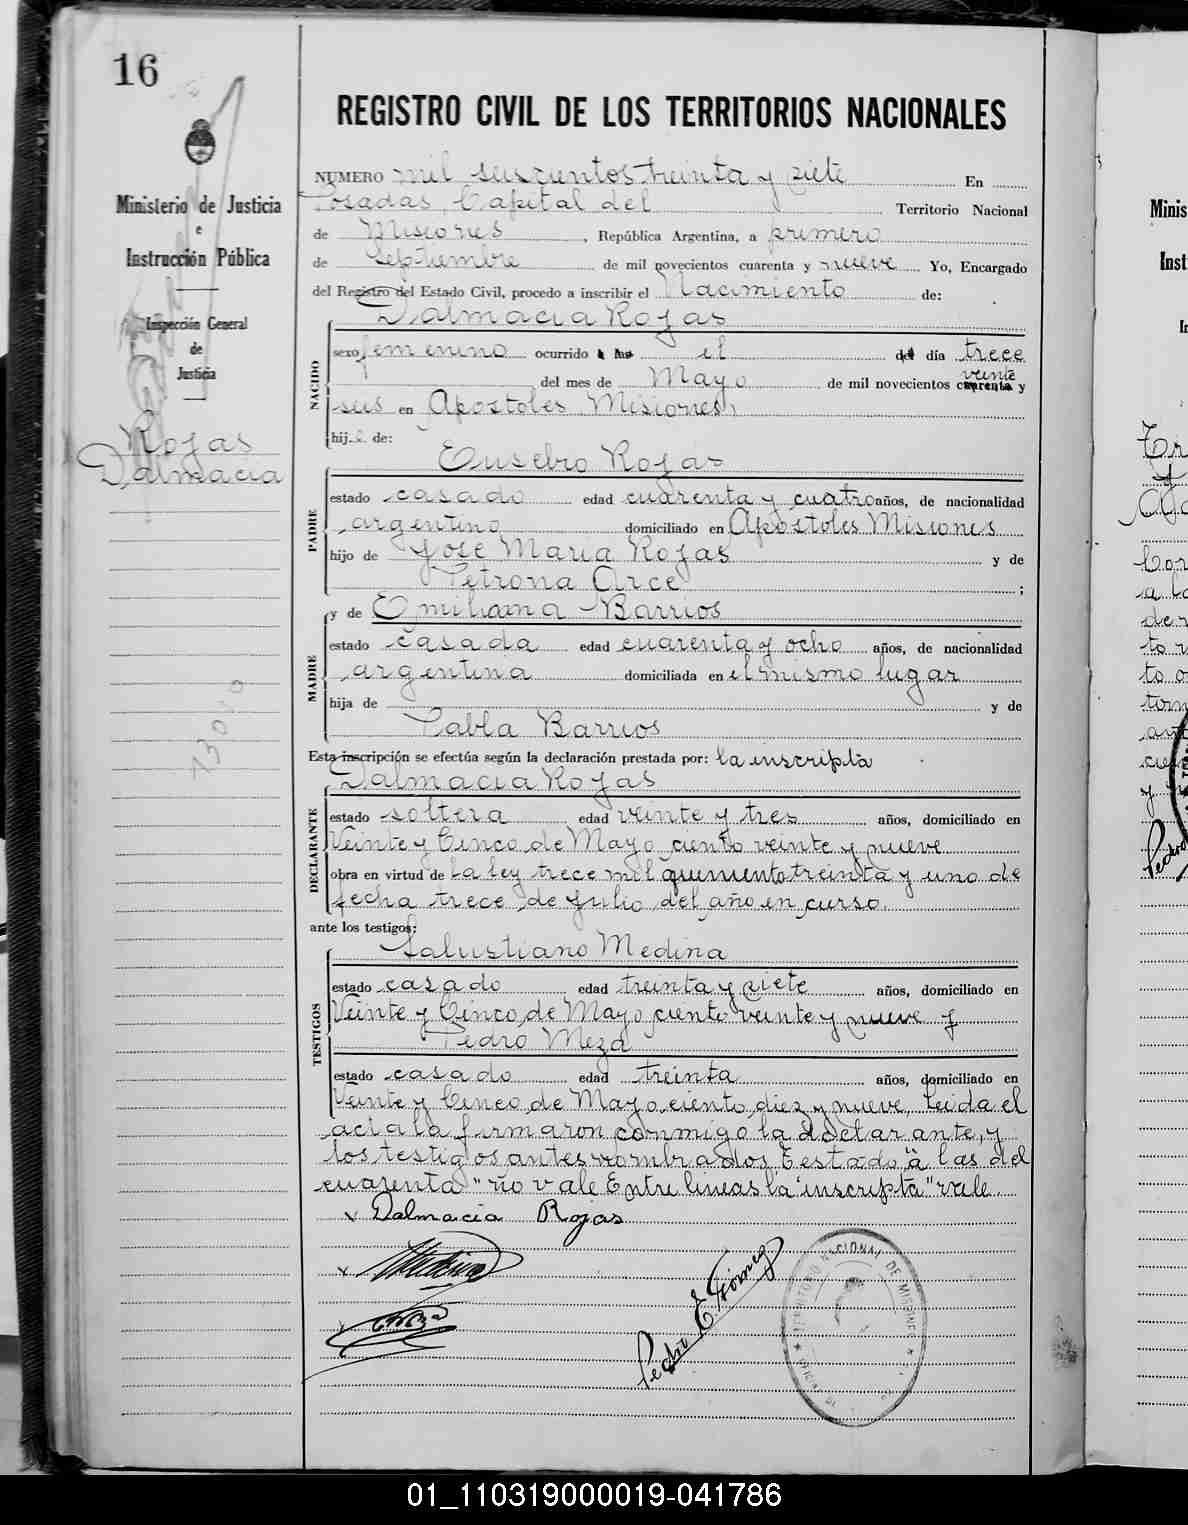 16
Ministerio de Justicia
e
Instrucción Pública
Inspección General
de
Justicia
Rojas
Dalmacia
REGISTRO CIVIL DE LOS TERRITORIOS NACIONALES
NUMERO mil seiscientos treinta y siete En
Posadas, Capital del Territorio Nacional
de Misiones, República Argentina, a primero
de Septiembre de mil novecientos cuarenta y nueve Yo, Encargado
del Registro del Estado Civil, procedo a inscribir el Nacimiento de:
Dalmacia Rojas
NACIDO
sexo femenino ocurrido a las el del día trece
del mes de Mayo de mil novecientos cuarenta veinte y
seis en Apostoles Misiones,
hij a de:
Eusebio Rojas
PADRE
estado casado edad cuarenta y cuatro años, de nacionalidad
argentino domiciliado en Apostoles Misiones
hijo de José María Rojas y de
Petrona Arce ;
y de Emiliana Barrios
MADRE
estado casada edad cuarenta y ocho años, de nacionalidad
argentina domiciliada en el mismo lugar
hija de y de
Pabla Barrios
Esta inscripción se efectúa según la declaración prestada por: la inscripta
Dalmacia Rojas
DECLARANTE
estado soltera edad veinte y tres años, domiciliado en
Veinte y Cinco de Mayo ciento veinte y nueve
obra en virtud de la ley trece mil quinientos treinta y uno de
fecha trece de Julio del año en curso.
ante los testigos:
Salustiano Medina
TESTIGOS
estado casado edad treinta y siete años, domiciliado en
Veinte y Cinco de Mayo ciento veinte y nueve y
Pedro Meza
estado casado edad treinta años, domiciliado en
Veinte y Cinco de Mayo ciento diez y nueve, Leida el
acta la firmaron conmigo la declarante, y
los testigos antes nombrados Testado "a las del
cuarenta" no vale Entre lineas la "inscripta" vale
Dalmacia Rojas
Medina
Meza
Pedro E. Gómez
TERRITORIO NACIONAL DE MISIONES
01_110319000019-041786